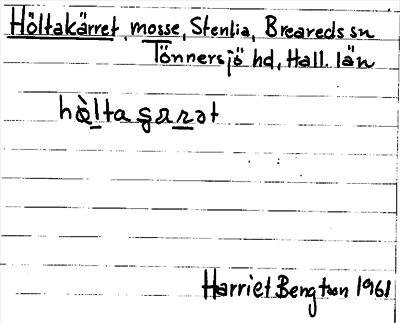 Höltakärret, mosse, Stenlia, Breareds sn
Tönnersjö hd, Hall. län
hò̱ltas̱aṟət
Harriet Bengtson 1961